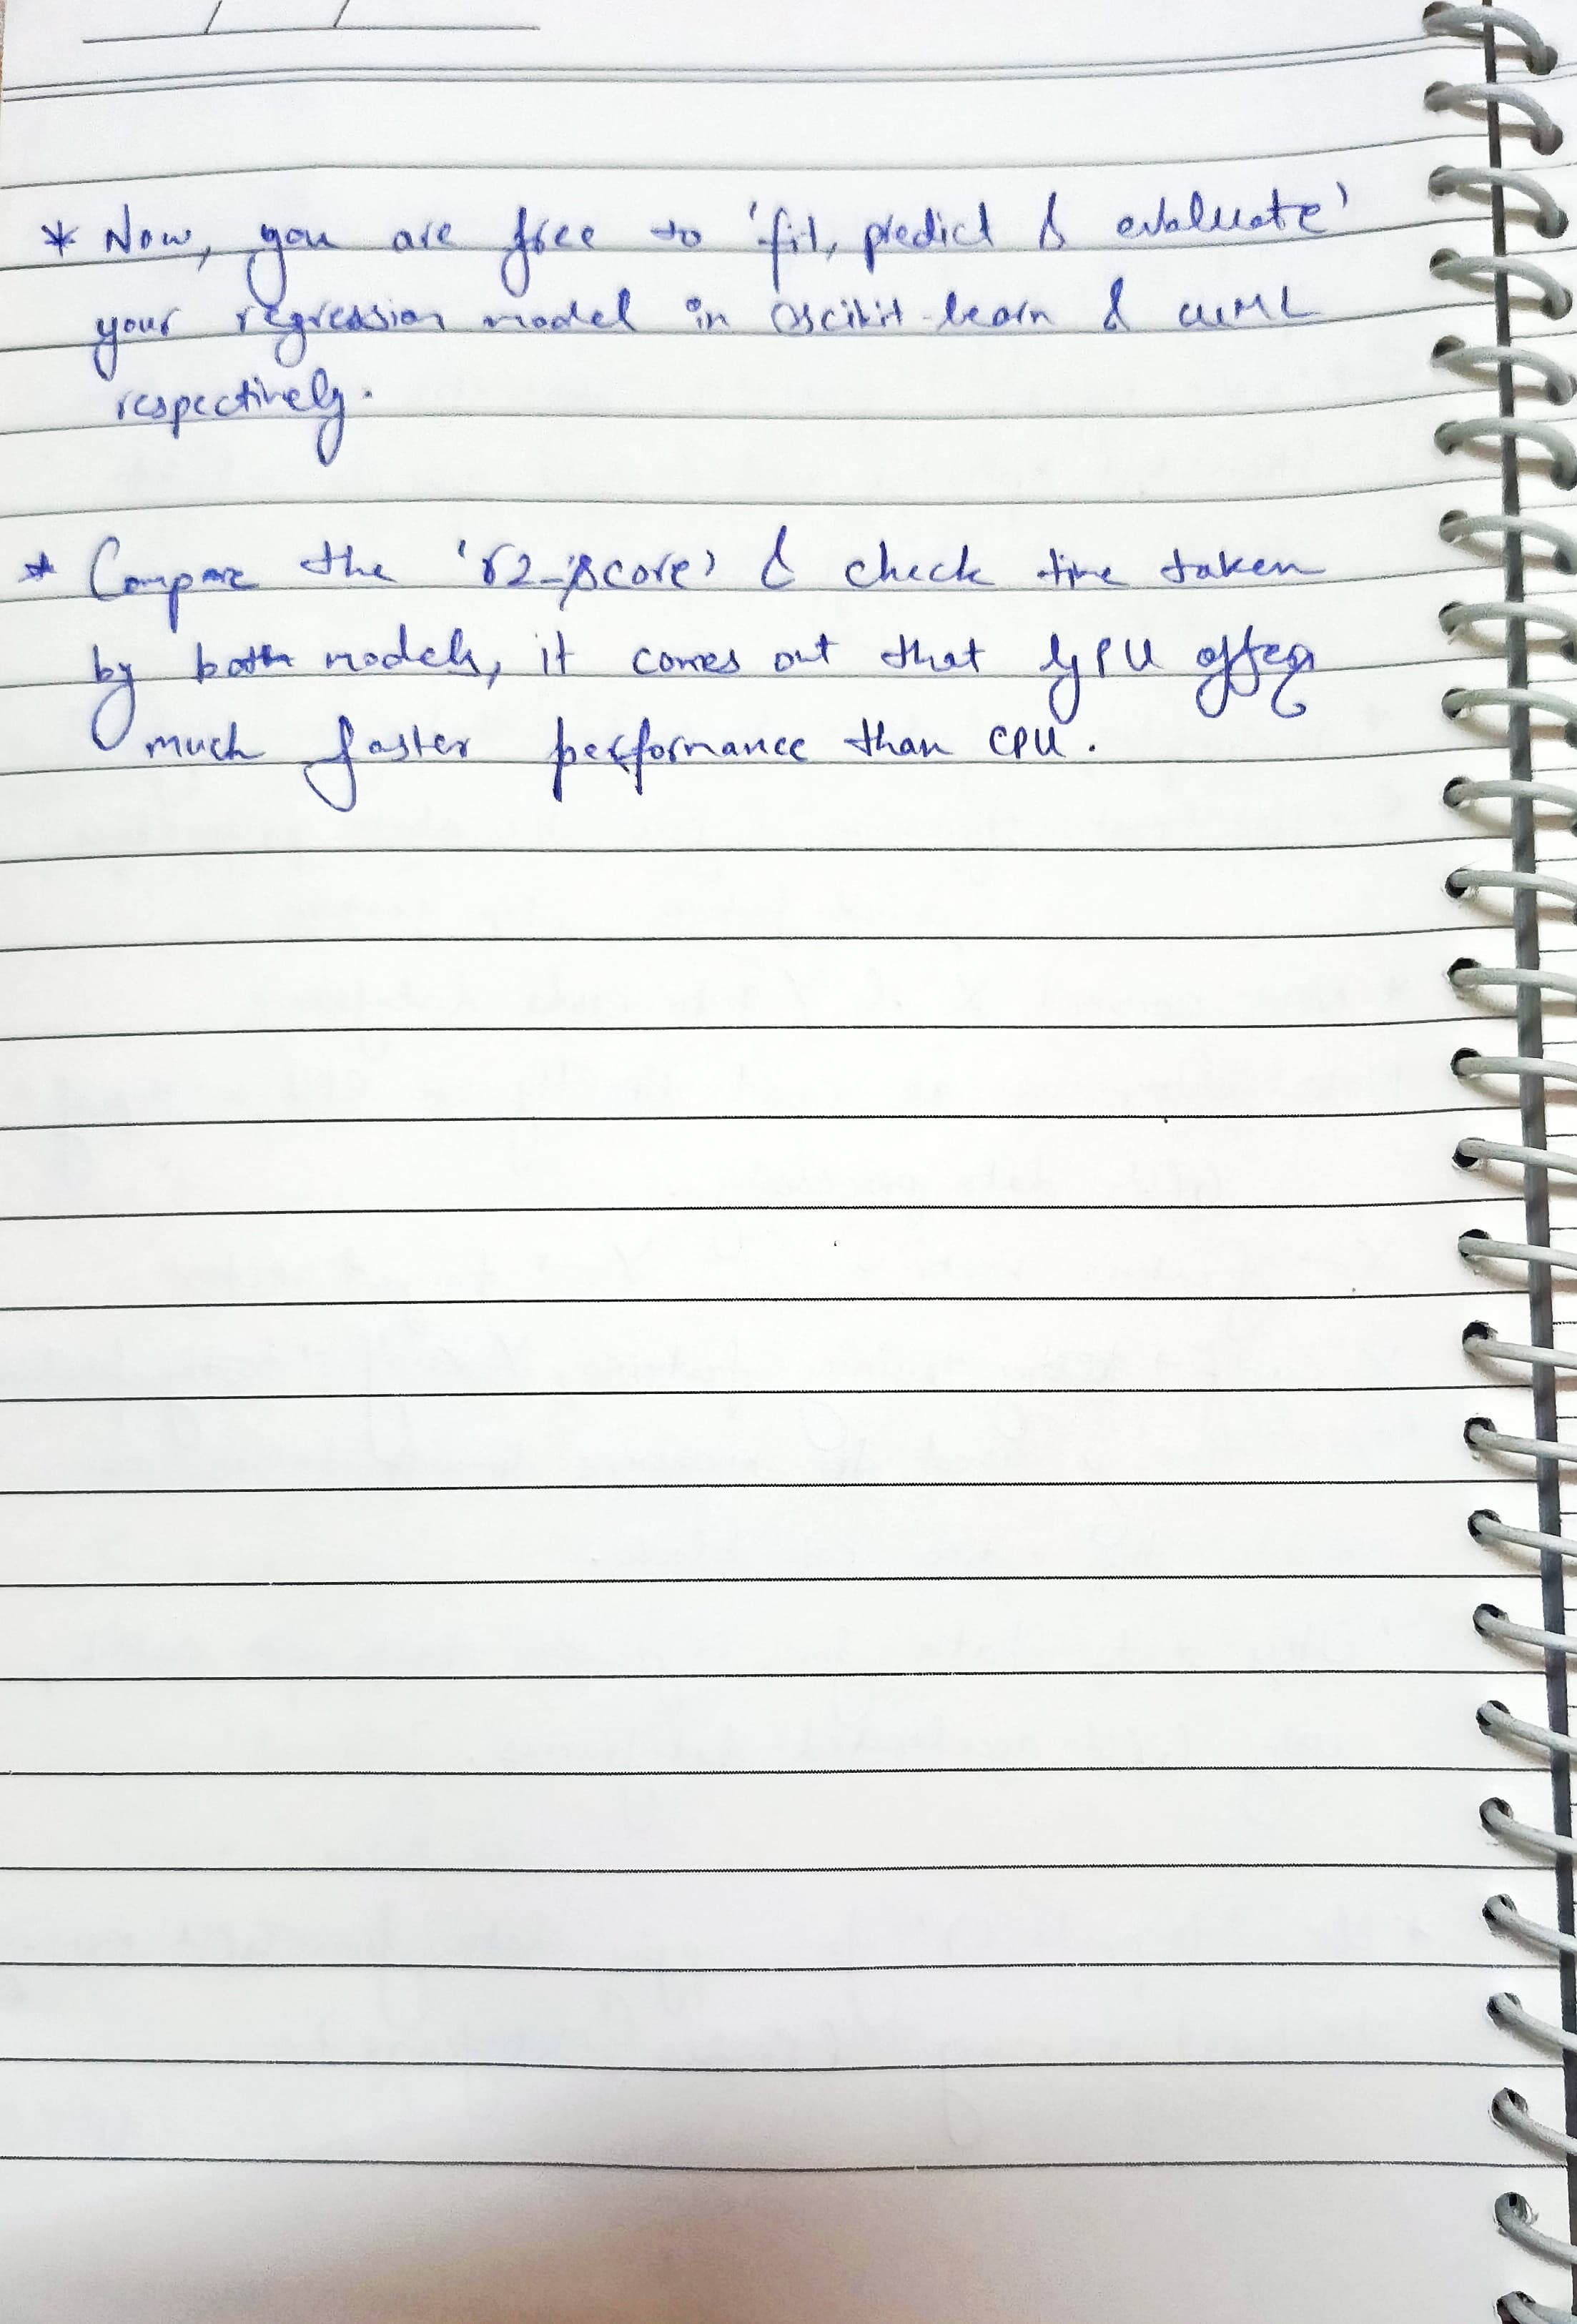 * Now, you are free to 'fit, predict & evaluate'
your regression model in scikit-learn & cuML
respectively.
* Compare the 'r2_score' & check time taken
by both models, it comes out that GPU offers
much faster performance than CPU.